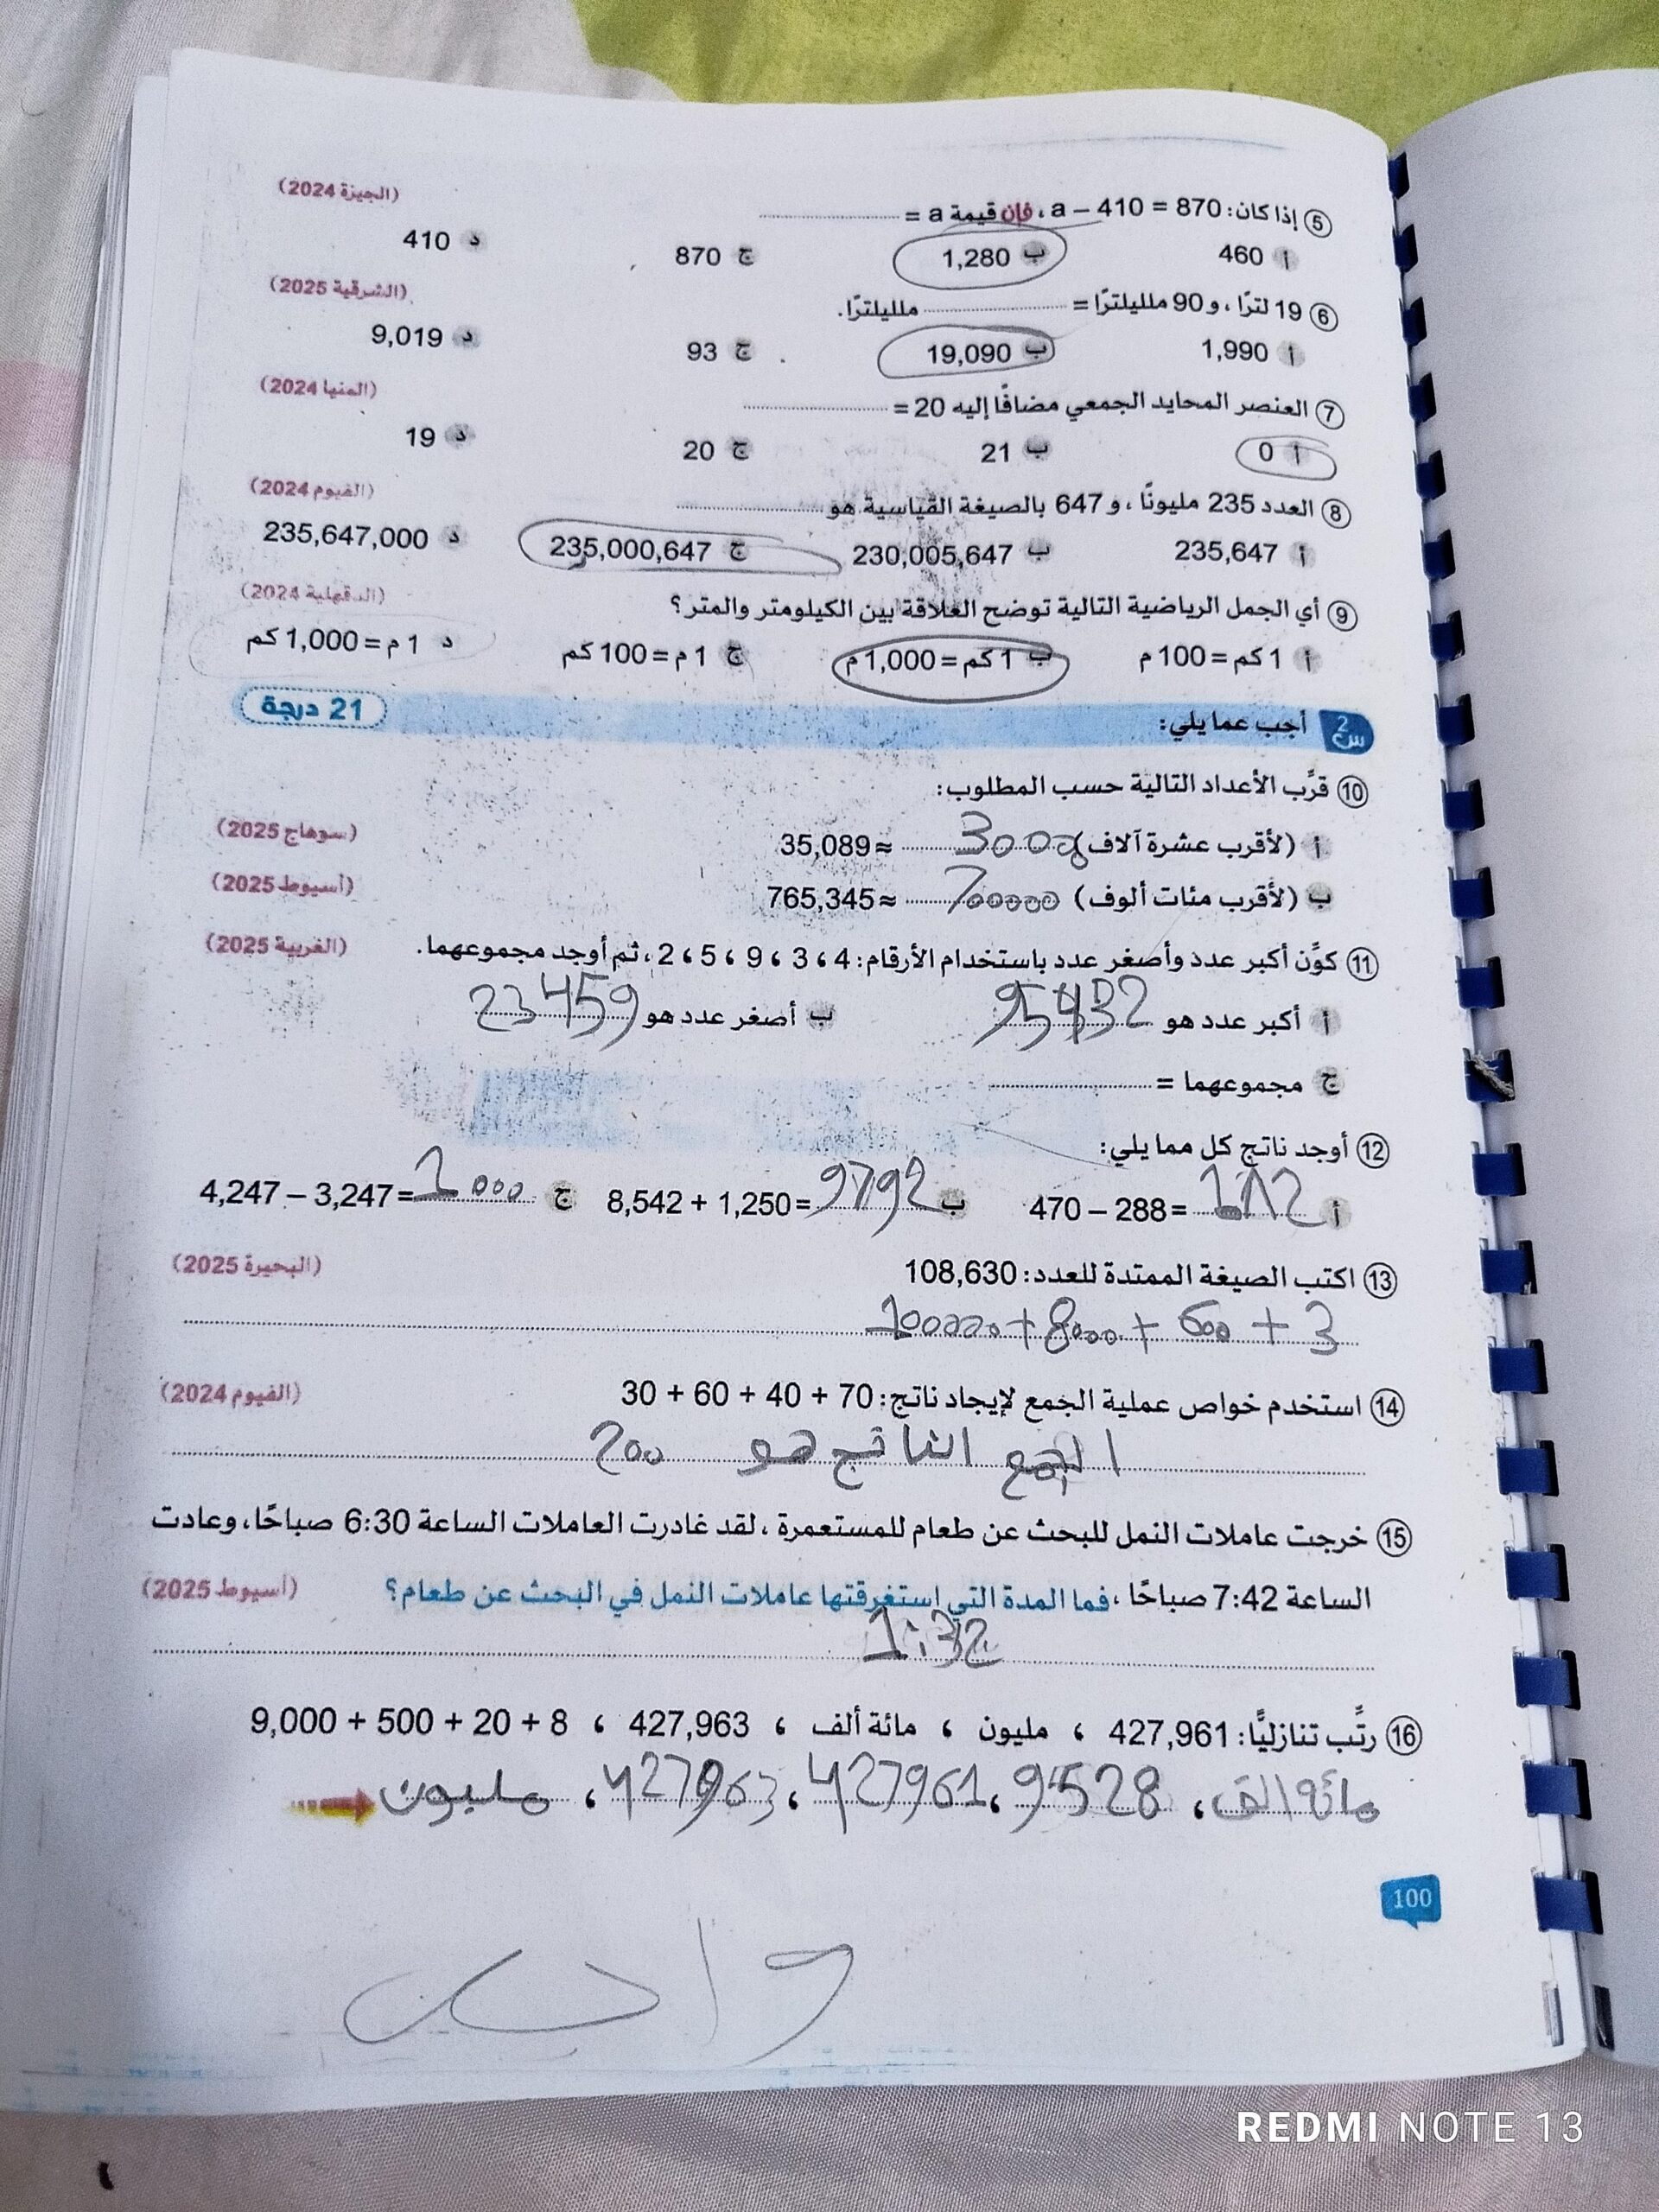 (الجيزة 2024)
⑤ إذا كان: a – 410 = 870 ، فإن قيمة a = ..............
أ 460 ب 1,280 ج 870 د 410
(الشرقية 2025)
⑥ 19 لترًا ، و 90 ملليلترًا = .............. ملليلترًا.
أ 1,990 ب 19,090 ج 93 د 9,019
(المنيا 2024)
⑦ العنصر المحايد الجمعي مضافًا إليه 20 = ..............
أ 0 ب 21 ج 20 د 19
(الفيوم 2024)
⑧ العدد 235 مليونًا ، و 647 بالصيغة القياسية هو ..............
أ 235,647 ب 230,005,647 ج 235,000,647 د 235,647,000
(الدقهلية 2024)
⑨ أي الجمل الرياضية التالية توضح العلاقة بين الكيلومتر والمتر؟
أ 1 كم = 100 م ب 1 كم = 1,000 م ج 1 م = 100 كم د 1 م = 1,000 كم
س2 أجب عما يلي: 21 درجة
⑩ قرِّب الأعداد التالية حسب المطلوب:
أ (لأقرب عشرة آلاف) 35,089 ≈ (سوهاج 2025)
ب (لأقرب مئات ألوف) 700000 ≈ 765,345 (أسيوط 2025)
⑪ كوِّن أكبر عدد وأصغر عدد باستخدام الأرقام: 4 ، 3 ، 9 ، 5 ، 2 ، ثم أوجد مجموعهما. (الغربية 2025)
أ أكبر عدد هو 95432 ب أصغر عدد هو 23459
ج مجموعهما = ..............
⑫ أوجد ناتج كل مما يلي:
أ 470 – 288 = ب 8,542 + 1,250 = 9792 ج 4,247 – 3,247 = 1000
⑬ اكتب الصيغة الممتدة للعدد: 108,630 (البحيرة 2025)
100000 + 8000 + 600 + 3
⑭ استخدم خواص عملية الجمع لإيجاد ناتج: 30 + 60 + 40 + 70 (الفيوم 2024)
الجمع الناتج هو 200
⑮ خرجت عاملات النمل للبحث عن طعام للمستعمرة ، لقد غادرت العاملات الساعة 6:30 صباحًا، وعادت
الساعة 7:42 صباحًا ، فما المدة التي استغرقتها عاملات النمل في البحث عن طعام؟ (أسيوط 2025)
1:32
⑯ رتِّب تنازليًّا: 427,961 ، مليون ، مائة ألف ، 427,963 ، 9,000 + 500 + 20 + 8
مائة الف ، 9528 ، 427961 ، 427963 ، مليون
100
REDMI NOTE 13